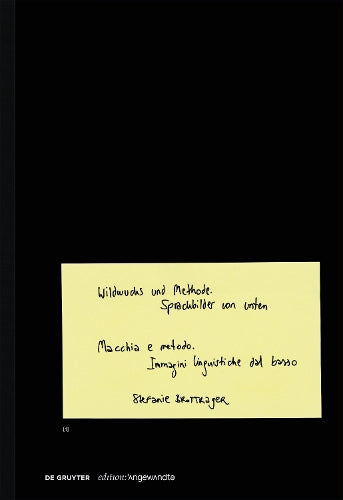 Wildwuchs und Methode.
Sprachbilder von unten
Macchia e metodo.
Immagini linguistiche dal basso
Stefanie Brottrager
DE GRUYTER edition:'Angewandte